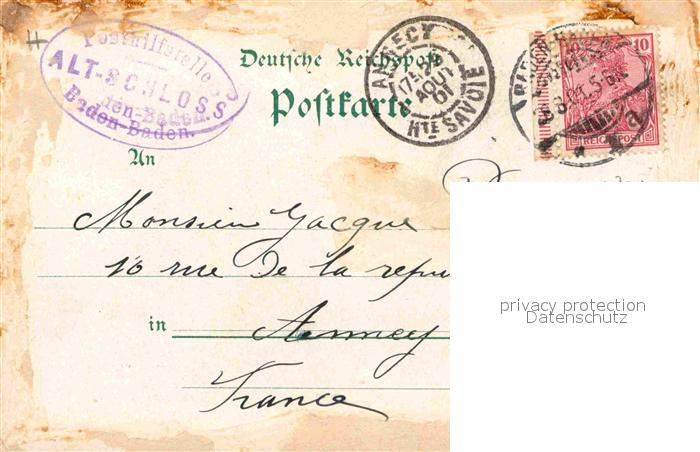 Posthilfstelle
ALT-SCHLOSS
Baden-Baden.
Deutsche Reichspost
Postkarte
ANNECY
AOUT
01
HTE SAVOIE
10
REICHSPOST
An
Monsieur Jacque
10 rue De la repu
in Annecy
France
privacy protection
Datenschutz